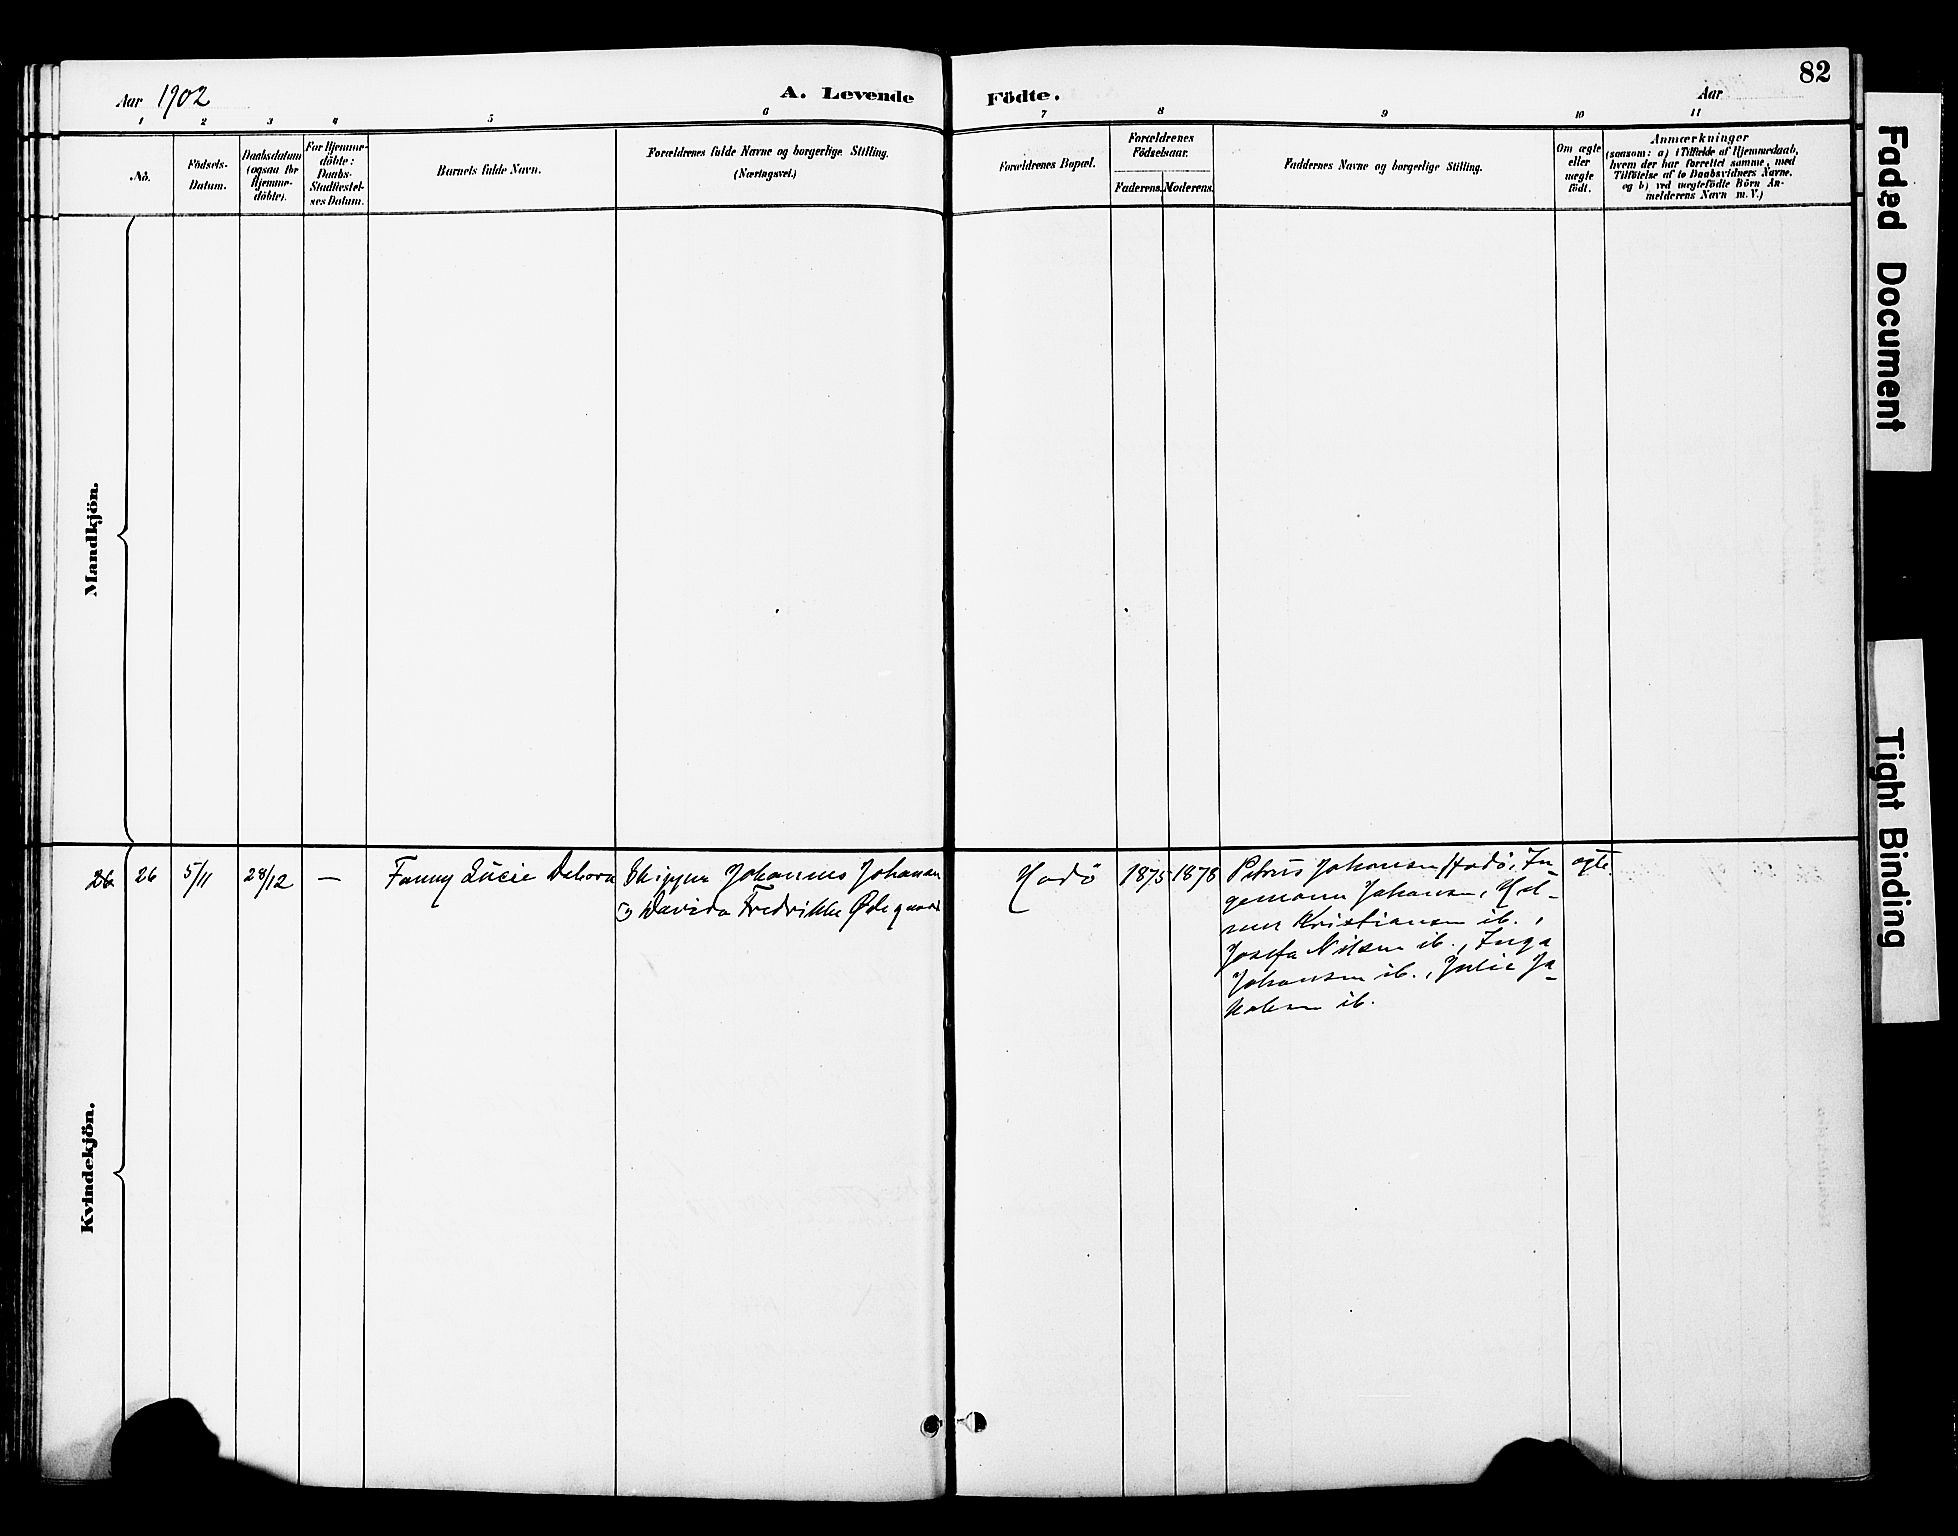 Aar 1902
A. Levende
Födte.
Aar
82
1 2 3 4 5 6 7 8 9 10 11
No.
Födsels-
Datum.
Daabsdatum
(ogsaa for
Hjemme-
döbte).
For Hjemme-
döbte:
Daabs-
Stadfæstel-
ses Datum.
Barnets fulde Navn.
Forældrenes fulde Navne og borgerlige Stilling.
(Næringsvei.)
Forældrenes Bopæl.
Forældrenes
Födselsaar.
Faderens. Moderens.
Faddernes Navne og borgerlige Stilling.
Om ægte
eller
uægte
födt.
Anmærkninger
(saasom: a) i Tilfælde af Hjemmedaab,
hvem der har forrettet samme, med
Tilföielse af to Daabsvidners Navne.
og b) ved uægtefödte Börn An-
melderens Navn m. V.)
Mandkjön.
26 26 5/11 28/12 — Fanny Lucie Debora
Skipper Johannes Johansen
Davida Fredrikke Ødegaard
Hadö 1875 1878
Petrus Johansen Hadö, In-
gemann Johansen, Hel-
mer Kristiansen ib.,
Josefa Nilsen ib., Inga
Johansen ib., Julie Ja-
kobsen ib.
ægte.
Kvindekjön.
Faded Document
Tight Binding